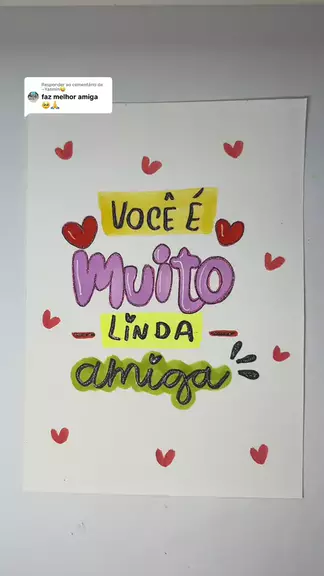 Responder ao comentário de
~Yasmin😉
faz melhor amiga
🥹🙏
VOCÊ É
Muito
LINDA
amiga